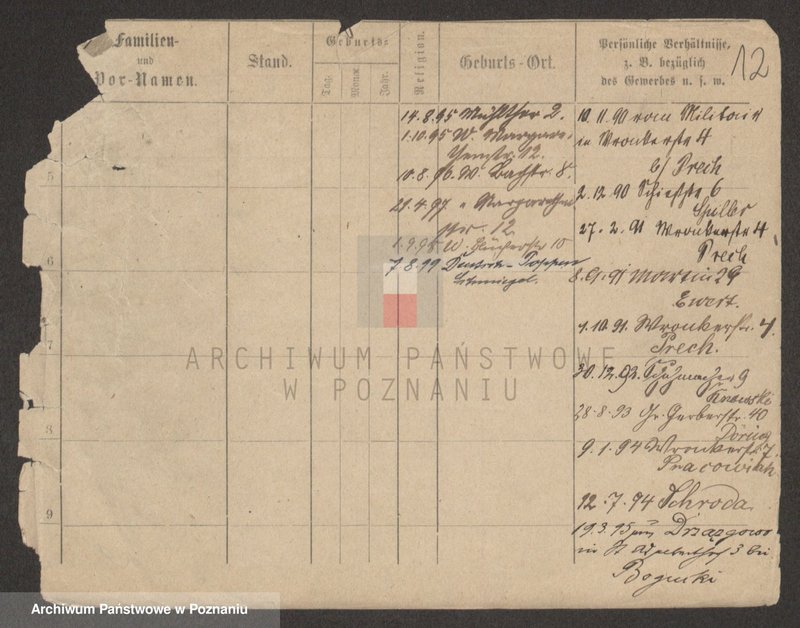 Familien-
und
Vor-Namen.
Stand.
Geburts-
Tag.
Monat
Jahr.
Religion.
Geburts-Ort.
Persönliche Verhältnisse,
z. B. bezüglich
des Gewerbes u. s. w.
12
14.8.95 Mühlthor 2.
1.10.95 W. Margare-
thenstr. 12.
10.8.96 W. Bachstr. 8.
21.4.97 " Margarethen
str. 12
1.9.98 W. Blücherstr 10
7.8.99 Deutsch-Poppen
10.11.90 vom Militair
in Wronkerstr 4
b/ Prech
2.12.90 Schießstr 6
Spiller
27.2.91 Wronkerstr 4
Prech
8.9.91 Martin 29
Ewert.
4.10.91. Wronkerstr. 4.
Prech.
30.12.92. Schuhmacher 9
28.8.93 Gr. Gerberstr. 40
9.1.94 Wronkerstr. 7
12.7.94 Schroda
19.3.95 Drzązgowo
in St Adalbertstr 3 bei
Bogucki
5
6
7
8
9
ARCHIWUM PAŃSTWOWE
W POZNANIU
Archiwum Państwowe w Poznaniu